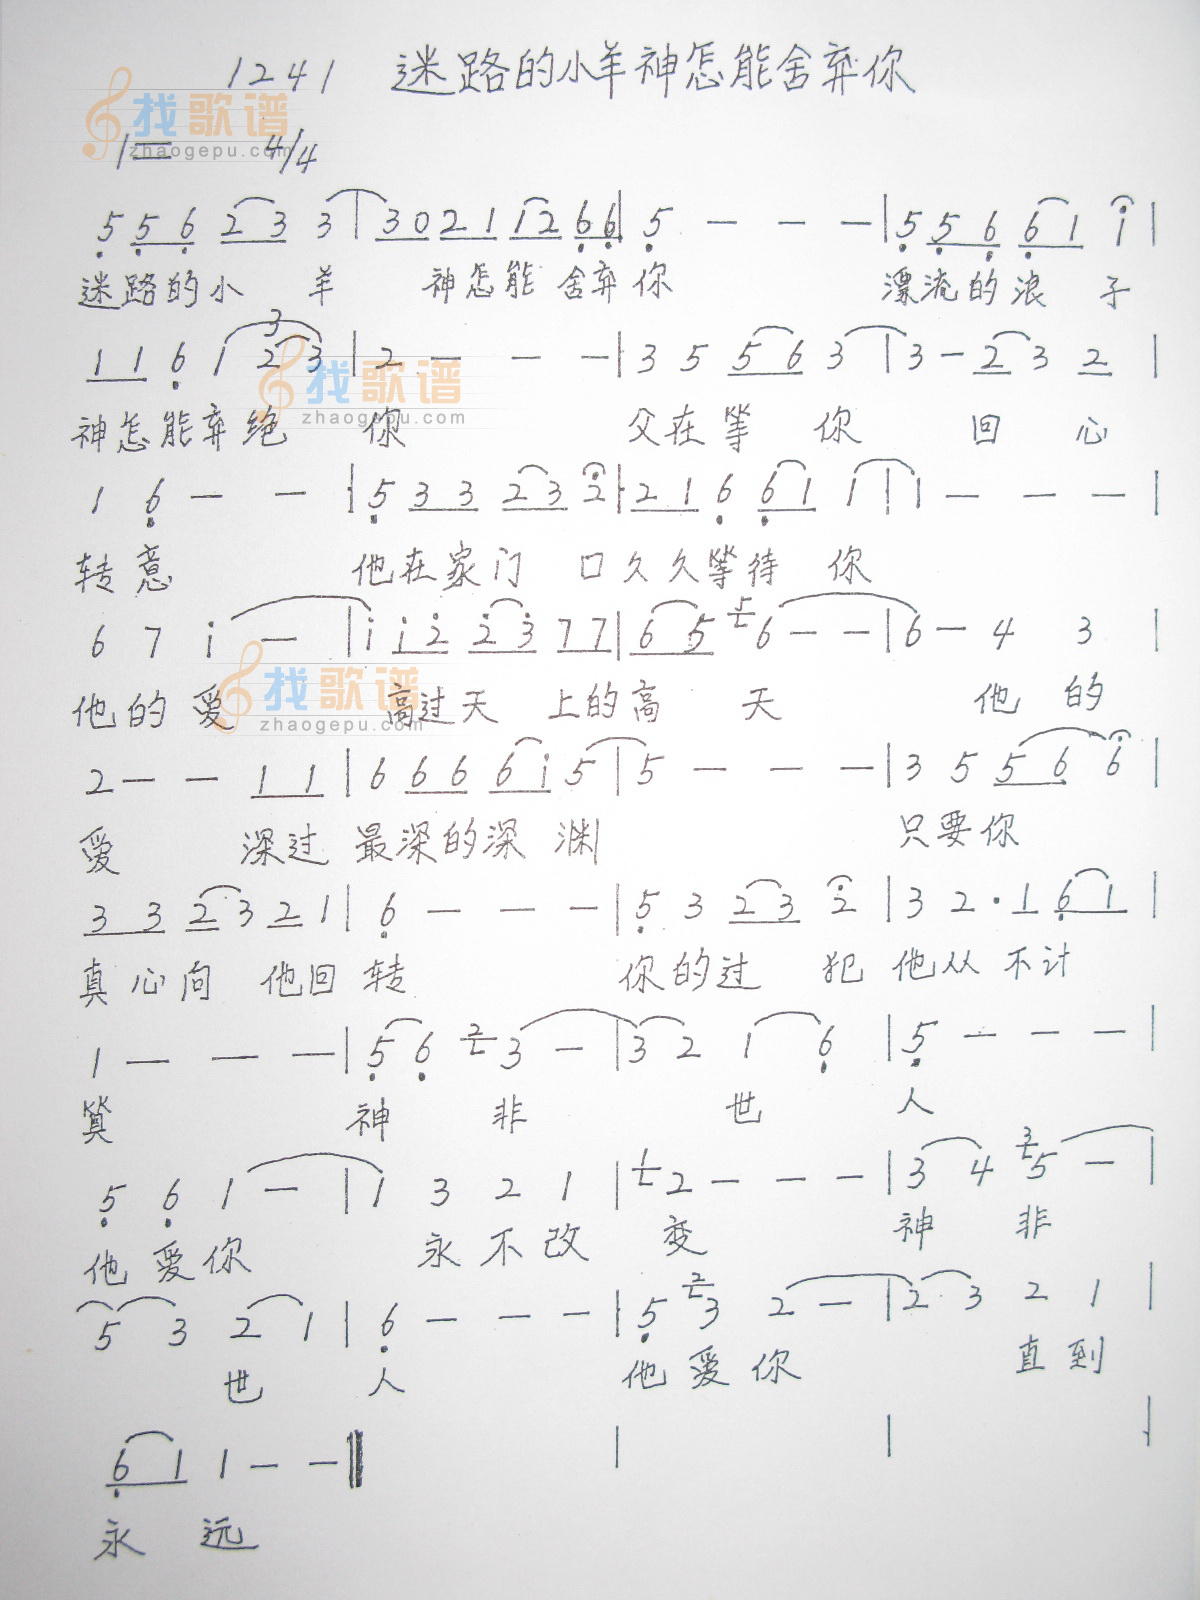 1241 迷路的小羊神怎能舍弃你
找歌谱
zhaogepu.com
1= 4/4
5 5 6 2 3 3 | 3 0 2 1 1 2 6 6 | 5 — — — | 5 5 6 6 1 i |
迷路的小 羊 神怎能 舍弃你 漂流的浪 子
3
1 1 6 1 2 3 | 2 — — — | 3 5 5 6 3 | 3 — 2 3 2 |
找歌谱
zhaogepu.com
神怎能弃绝 你 父在等 你 回 心
1 6 — — | 5 3 3 2 3 2 | 2 1 6 6 1 1 | 1 — — — |
转意 他在家门 口久久等待 你
6 7 i — | i i 2 2 3 7 7 | 6 5 5 6 — — | 6 — 4 3 |
找歌谱
zhaogepu.com
他的爱 高过天 上的高 天 他 的
2 — — 1 1 | 6 6 6 6 i 5 | 5 — — — | 3 5 5 6 6 |
爱 深过 最深的深 渊 只要你
3 3 2 3 2 1 | 6 — — — | 5 3 2 3 2 | 3 2 · 1 6 1 |
真心向 他回 转 你的过 犯 他从不计
1 — — — | 5 6 2 3 — | 3 2 1 6 | 5 — — — |
算 神 非 世 人
5 6 1 — | 1 3 2 1 | 1 2 — — — | 3 4 3 5 — |
他爱你 永不改 变 神 非
5 3 2 1 | 6 — — — | 5 2 3 2 — | 2 3 2 1 |
世 人 他爱你 直到
6 1 1 — — ‖ | | |
永 远